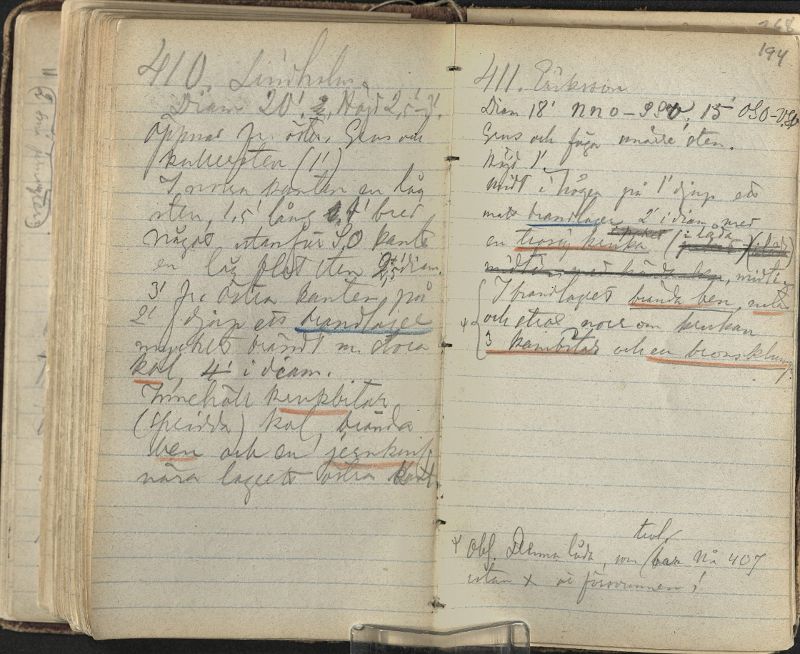 410. Lindholm.
Diam 20', Höjd 2,5'-3'.
Öppnad fr. öster, Grus och
kullersten (1')
I norra kanten en låg
sten, 1,5' lång, 1' bred
något utanför S.O kanten
en låg flat sten 2,5' diam.
3' fr. östra kanten på
2' djup ett brandlager
mycket brändt m. stora
kol, 4' i diam.
Innehöll krukbitar
(spridda) kol brända
ben och en jernknif
nära lagrets östra kant.
194
411. Eriksson
Diam 18' NNO-SSV, 15' OSO-VSV
Grus och få smärre sten.
Höjd 1'
Midt i högen på 1' djup ett
brandlager 2' i diam. med
en kruka
midt i
I brandlagret brända ben,
och strax norr om krukan
3 kambitar och en bronsklump.
Ψ Obs. Denna låda, som trol. No 407
utan x är försvunnen!